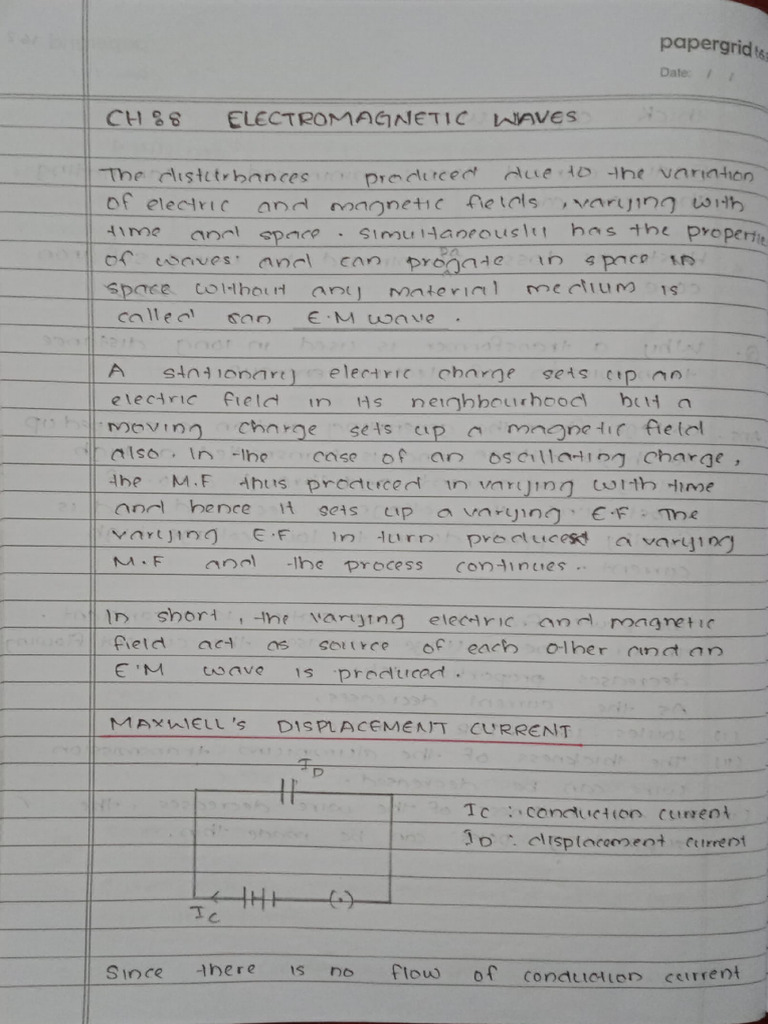 papergrid
Date: / /
CH 88 ELECTROMAGNETIC WAVES
The disturbances produced due to the variation
of electric and magnetic fields, varying with
time and space. simultaneously has the propertie
of waves and can progate in space in
pa
space without any material medium is
called san E.M wave.
A stationary electric charge sets up an
electric field in its neighbourhood but a
moving charge sets up a magnetic field
also. In the case of an oscillating charge,
the M.F thus produced in varying with time
and hence it sets up a varying E.F. The
varying E.F in turn produces a varying
M.F and the process continues..
In short, the varying electric and magnetic
field act as source of each other and an
E.M wave is produced.
MAXWELL's DISPLACEMENT CURRENT
ID
IC : conduction current
ID : displacement current
IC
Since there is no flow of conduction current